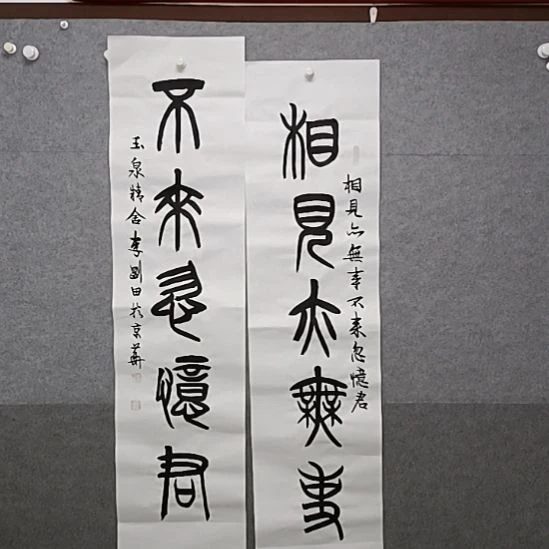 相見亦無事不来忽憶君
相見亦無事
不來忽憶君
玉泉精舍李劉田於京華